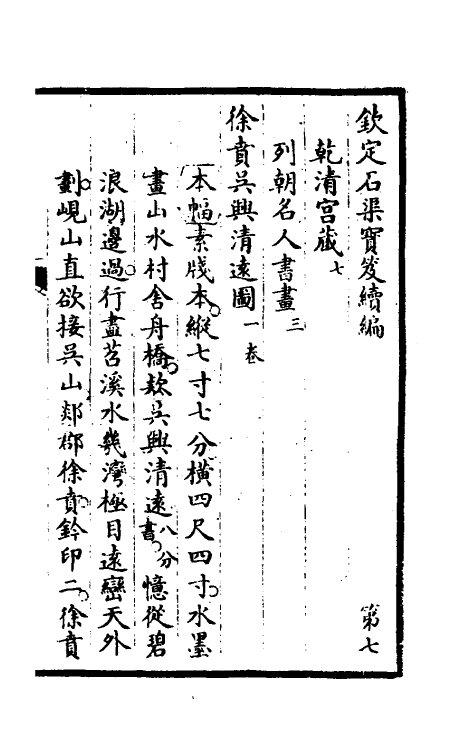 欽定石渠寶笈續編　第七
乾清宫藏七
列朝名人書畫三
徐賁吳興清遠圖一卷
本幅素牋本縱七寸七分横四尺四寸水墨
畫山水村舍舟橋款吳興清遠八分書憶從碧
浪湖邊過行盡苕溪水幾灣極目遠巒天外
劃峴山直欲接吳山郯郡徐賁鈐印二徐賁